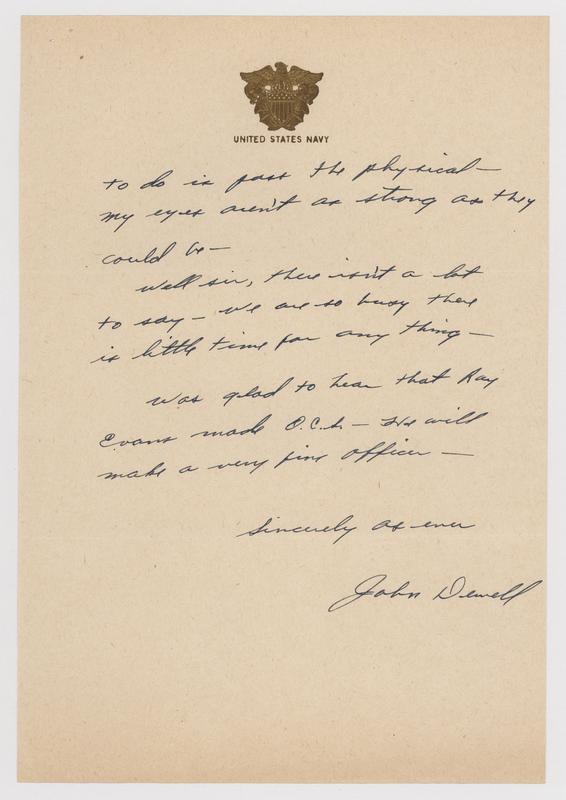 UNITED STATES NAVY
to do is pass the physical—
my eyes aren't as strong as they
could be—
Well sir, there isn't a lot
to say — we are so busy there
is little time for any thing—
Was glad to hear that Ray
Evans made O.C.S. — He will
make a very fine officer —
Sincerely as ever
John Dewell